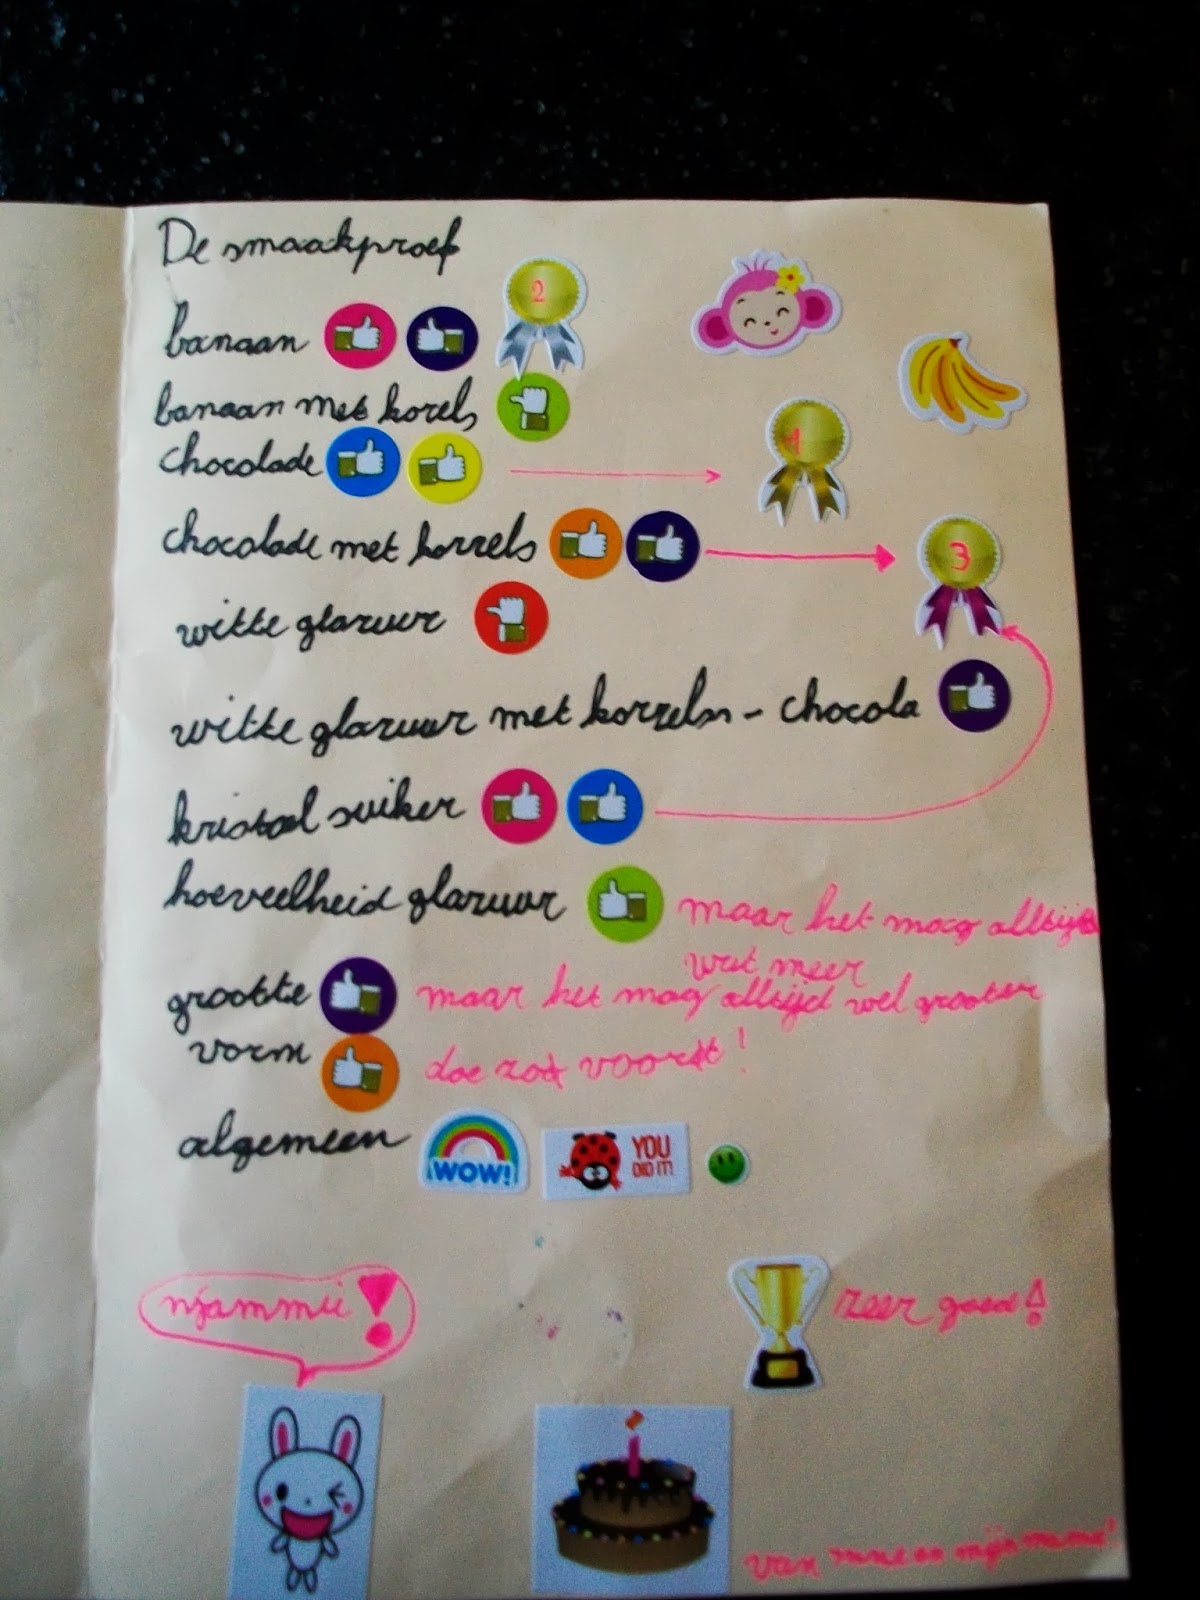 De smaakproef
banaan 2
banaan met korels
chocolade 1
chocolade met korrels 3
witte glazuur
witte glazuur met korrels - chocola
kristal suiker
hoeveelheid glazuur maar het mag alltijd
wat meer
grootte maar het mag alltijd wel grooter
vorm doe zo voorst!
algemeen WOW! YOU
DID IT!
njammii! zeer goed!
van en mijn mama!